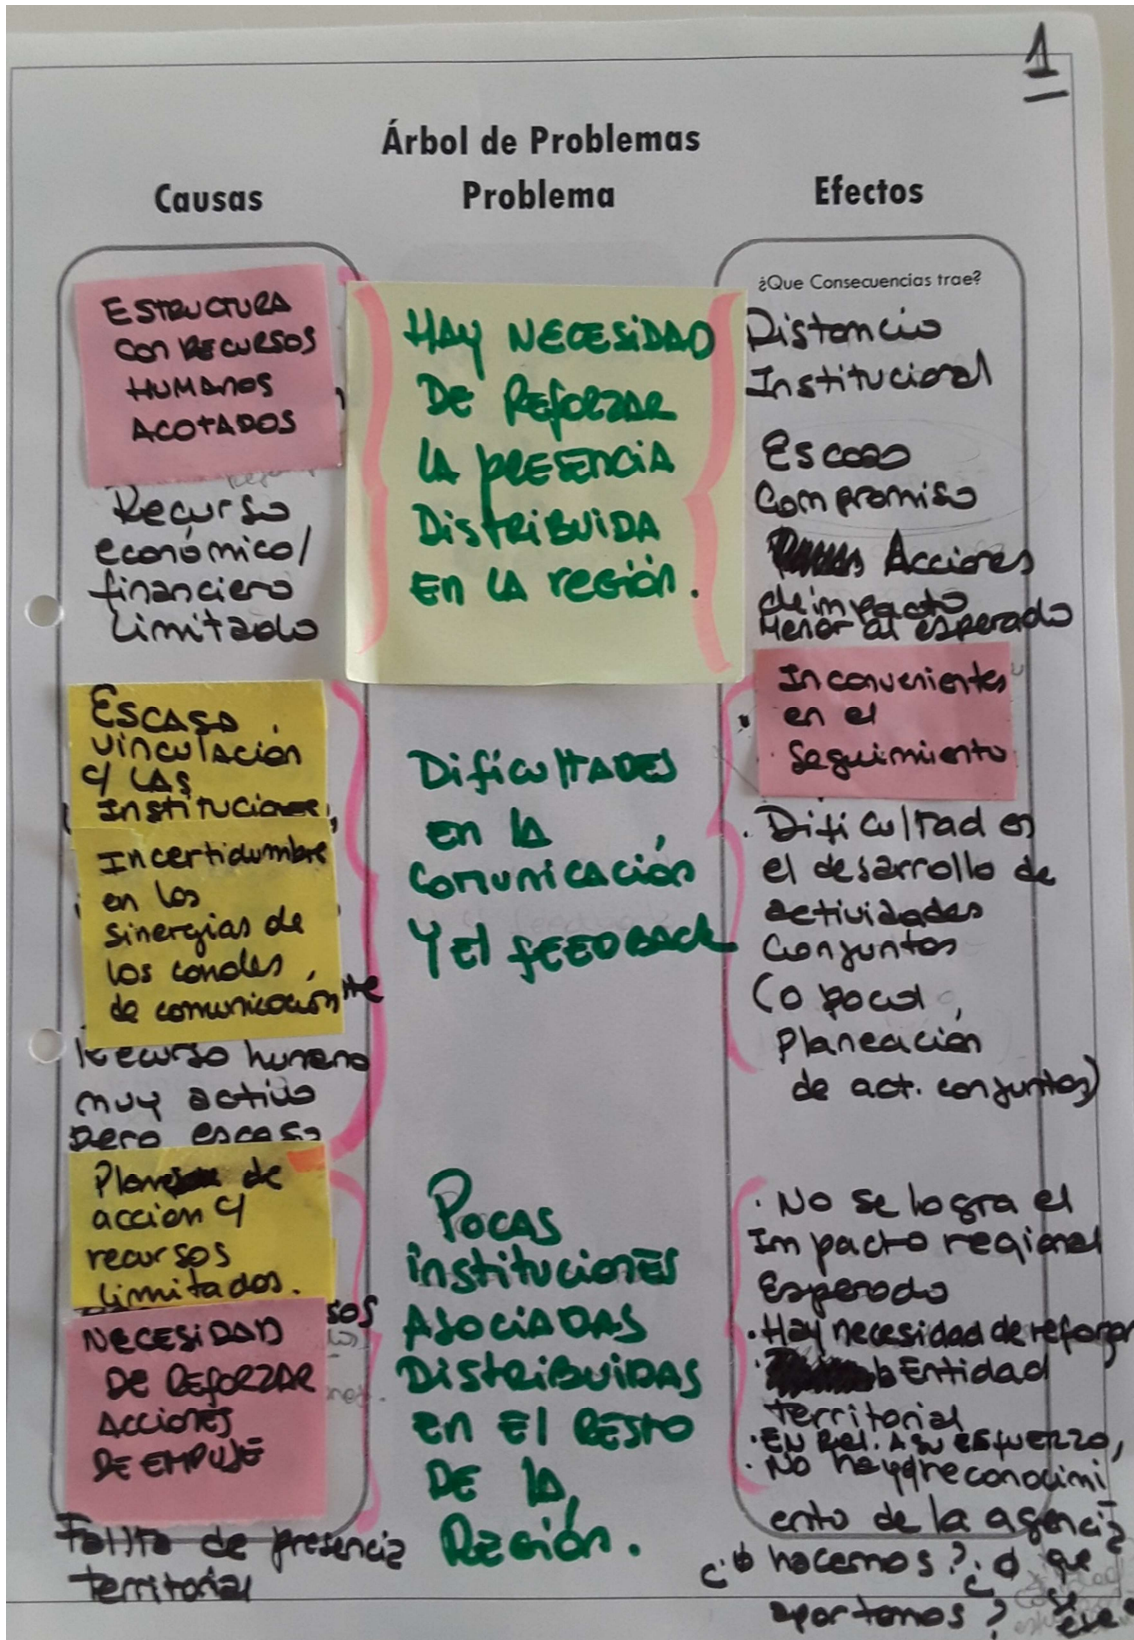 1
Árbol de Problemas
Causas
Problema
Efectos
ESTRUCTURA
CON RECURSOS
HUMANOS
ACOTADOS
Recurso
económico/
financiero
limitado
ESCASA
vinculación
c/ LAS
Instituciones,
Incertidumbre
en los
sinergias de
los canales
de comunicación
Recurso humano
muy activo
pero escaso
Planes de
acción c/
recursos
limitados.
NECESIDAD
DE REFORZAR
ACCIONES
DE EMPUJE
Fallta de presencia
territorial
HAY NECESIDAD
DE REFORZAR
LA PRESENCIA
DISTRIBUIDA
EN LA región.
DificulTADES
en la
Comunicación
Y el FEEDBACK
POCAS
instituciones
ASOCIADAS
DISTRIBUIDAS
en El RESTO
DE la
Región.
¿Que Consecuencias trae?
Distancia
Institucional
Escaso
Compromiso
Acciones
de impacto
Menor al esperado
Inconvenientes
en el
Seguimiento
. Dificultad en
el desarrollo de
actividades
Conjuntas
(o poca
planeación
de act. conjuntas)
. No se logra el
Impacto regional
Esperado
. Hay necesidad de reforzar
Entidad
territorial
. EN Rel. A su ESFUERZO,
. No hay reconocimi
ento de la agencia
hacemos? ¿ que
aportamos?